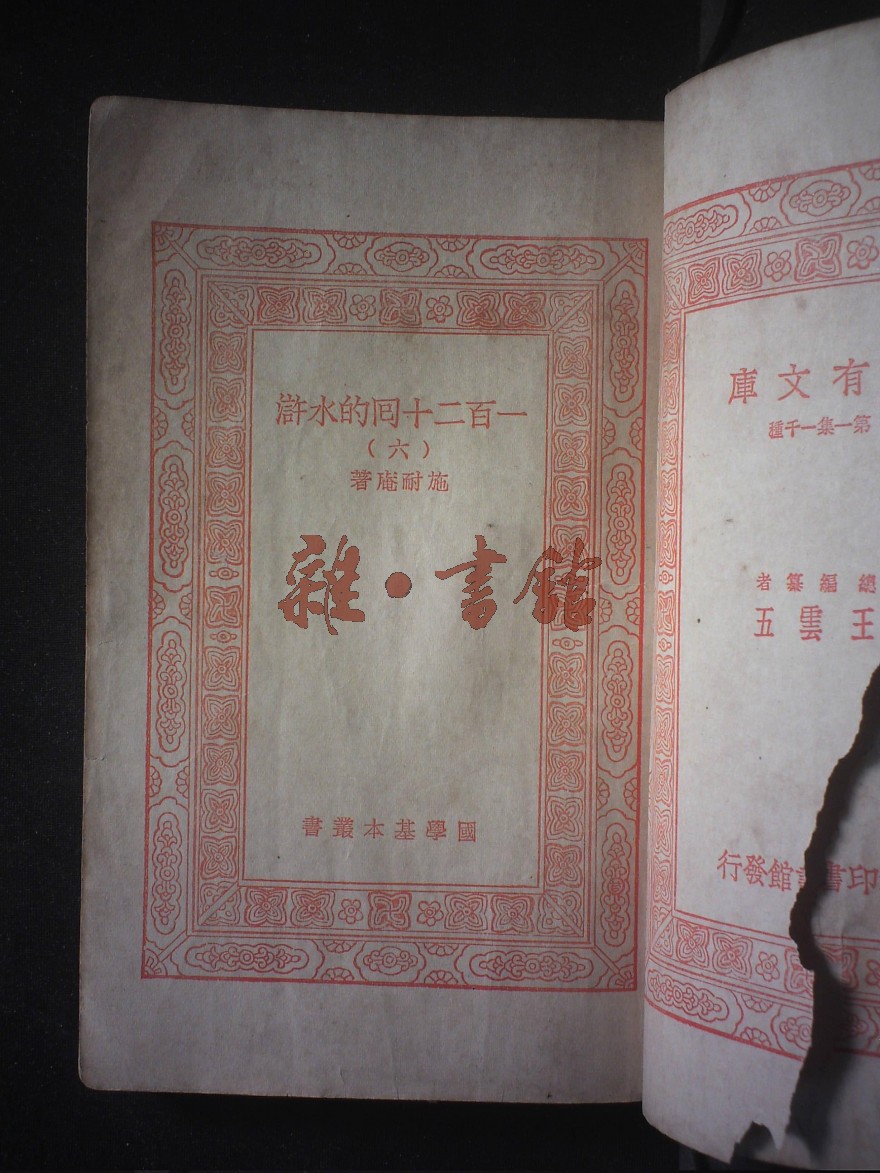 有文庫
第一集一千種
總編纂者
王雲五
印書館發行
一百二十囘的水滸
（六）
施耐庵著
雜·書館
國學基本叢書